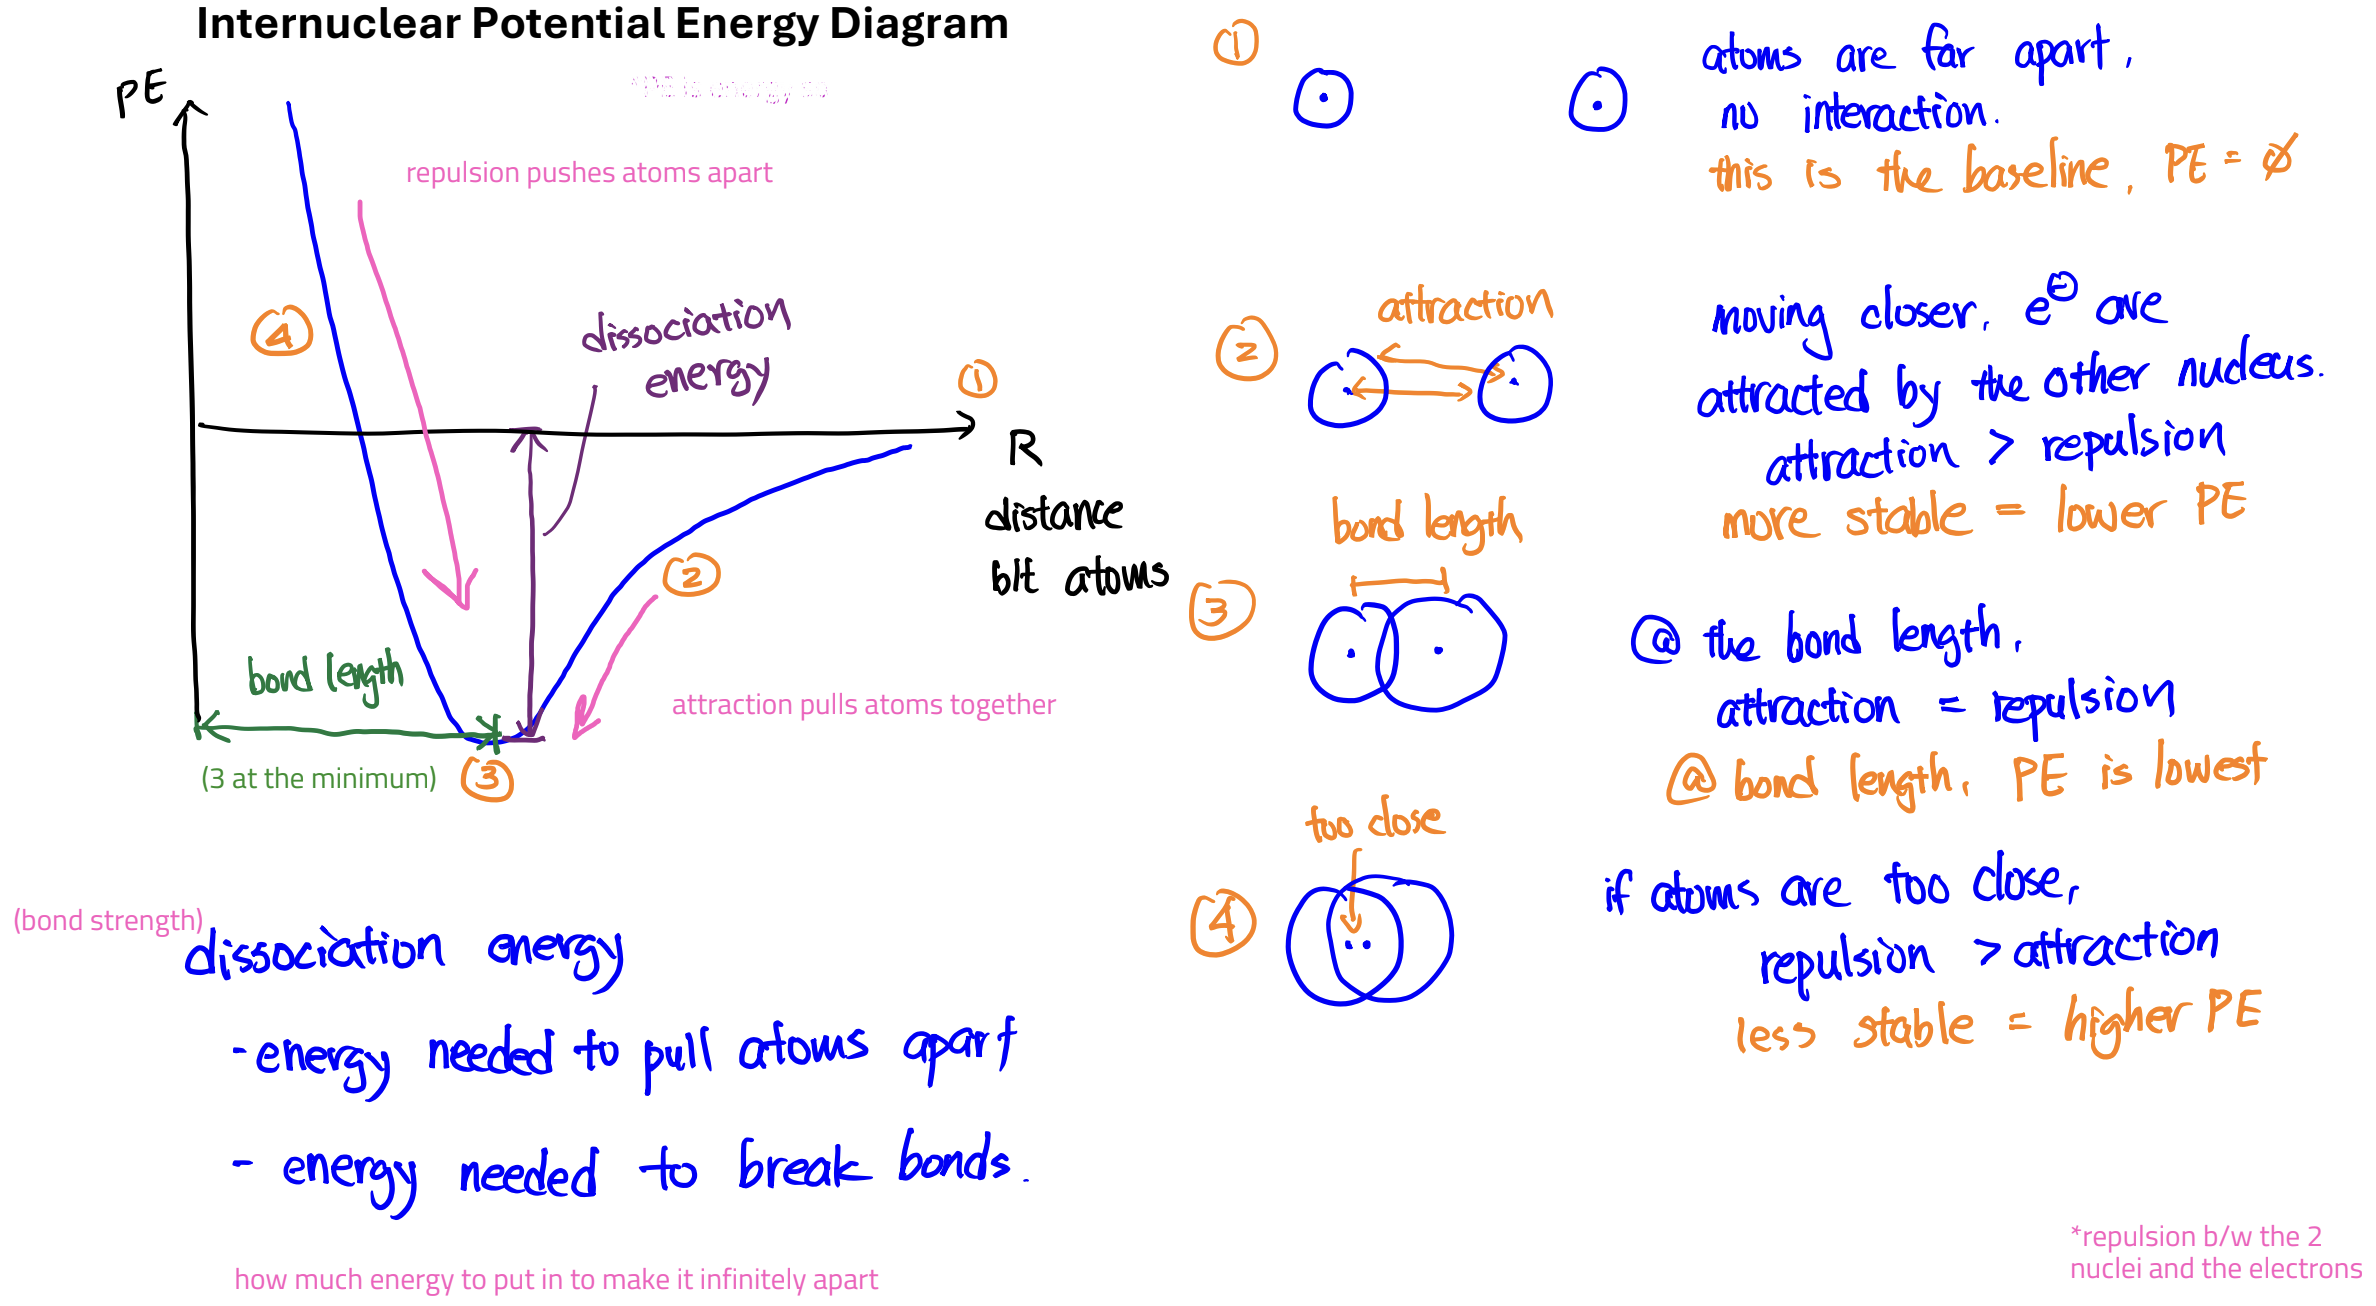 Internuclear Potential Energy Diagram
PE
repulsion pushes atoms apart
4
dissociation
energy
1
R
distance
b/t atoms
2
bond length
attraction pulls atoms together
(3 at the minimum)
3
(bond strength)
dissociation energy
- energy needed to pull atoms apart
- energy needed to break bonds.
how much energy to put in to make it infinitely apart
1
atoms are far apart,
no interaction.
this is the baseline, PE = ∅
2
attraction
moving closer, e⊖ are
attracted by the other nucleus.
attraction > repulsion
more stable = lower PE
bond length
3
@ the bond length,
attraction = repulsion
@ bond length, PE is lowest
too close
4
if atoms are too close,
repulsion > attraction
less stable = higher PE
*repulsion b/w the 2
nuclei and the electrons